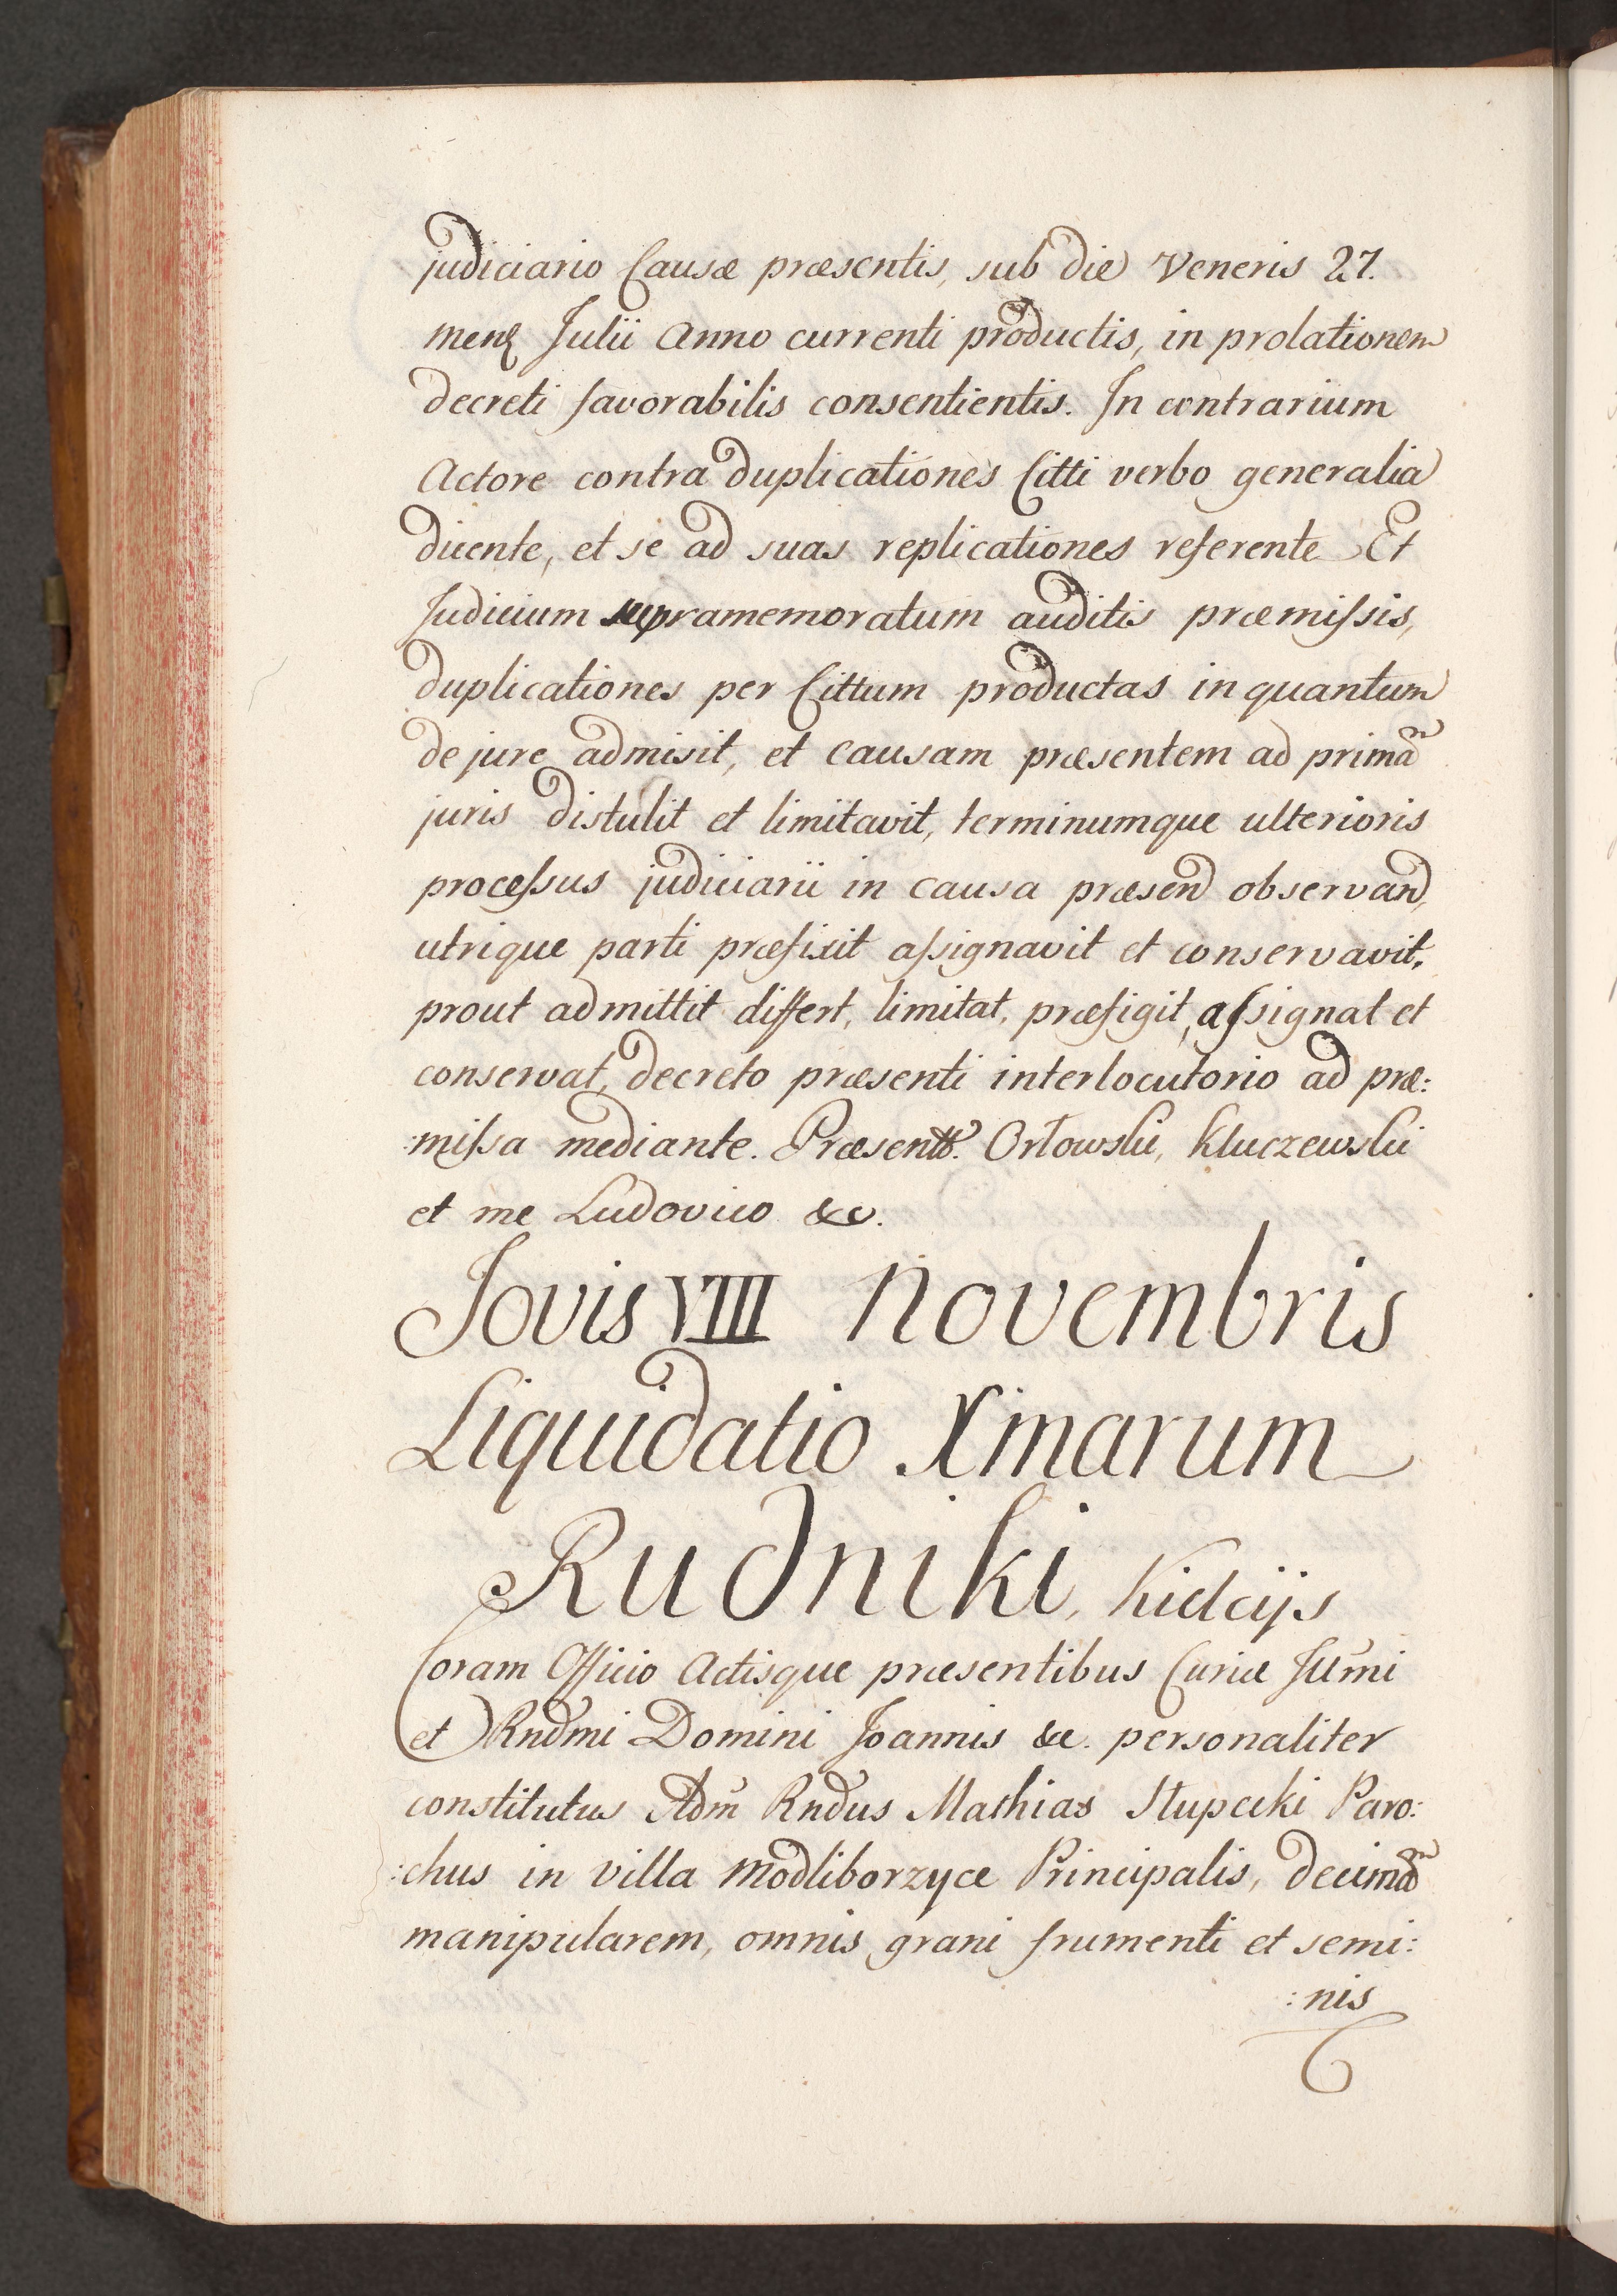 judiciario Causæ præsentis, sub die Veneris 27.
mens Julii Anno currenti productis, in prolationem
decreti favorabilis consentientis. In contrarium
Actore contra duplicationes Citti verbo generalia
dicente, et se ad suas replicationes referente Et
Judicium supramemoratum auditis præmissis,
duplicationes per Cittum productas in quantum
de jure admisit, et causam præsentem ad primam
juris distulit et limitavit, terminumque ulterioris
processus judiciarii in causa præsend observand,
utrique parti præfixit assignavit et conservavit,
prout admittit differt, limitat, præfigit, assignat et
conservat, decreto præsenti interlocutorio ad præ:
:missa mediante. Præsentt. Orłowski, Kluczewski
et me Ludovico &c.
Jovis VIII Novembris
Liquidatio Xmarum
Rudniki, Kielcijs
Coram Officio Actisque præsentibus Curiæ Illmi
et Rndmi Domini Joannis &c. personaliter
constitutus Adm Rndus Mathias Słupecki Paro:
:chus in villa Modliborzyce Principalis, decimam
manipularem, omnis grani frumenti et semi:
:nis